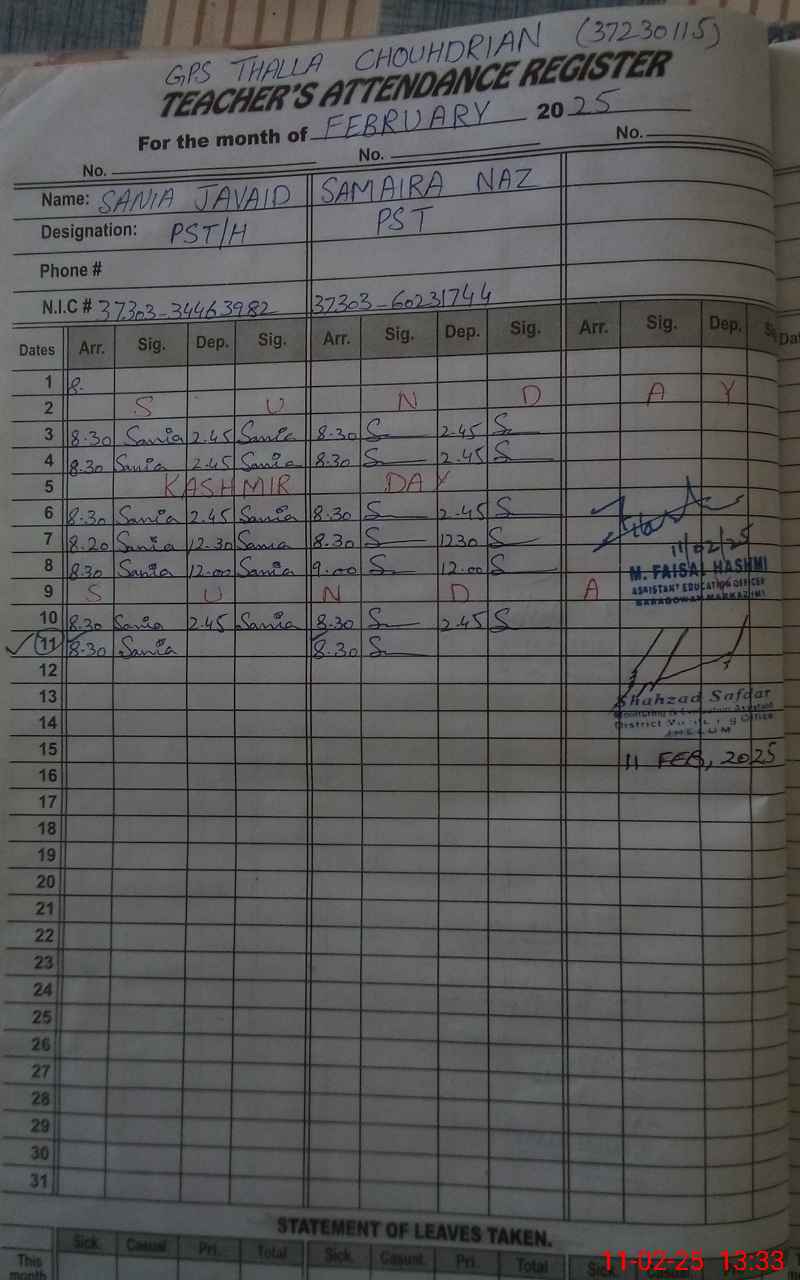 GPS THALLA CHOUHDRIAN (37230115)
TEACHER'S ATTENDANCE REGISTER
For the month of FEBRUARY 2025
No. No. No.
Name: SANIA JAVAID SAMAIRA NAZ
Designation: PST/H PST
Phone #
N.I.C # 37303-34463982 37303-60231744
Dates Arr. Sig. Dep. Sig. Arr. Sig. Dep. Sig. Arr. Sig. Dep.
1 8.
2 S U N D A Y
3 8.30 Sania 2.45 Sania 8.30 S 2.45 S
4 8.30 Sania 2.45 Sania 8.30 S 2.45 S
5 KASHMIR DAY
6 8.30 Sania 2.45 Sania 8.30 S 2.45 S
7 8.20 Sania 12.30 Sania 8.30 S 1230 S
11/02/25
8 8.30 Sania 12.00 Sania 9.00 S 12.00 S
M. FAISAL HASHMI
ASSISTANT EDUCATION OFFICER
9 S U N D A
10 8.30 Sania 2.45 Sania 8.30 S 2.45 S
11 8.30 Sania 8.30 S
12
13
Shahzad Safdar
14
District Office
JHELUM
15
11 FEB, 2025
16
17
18
19
20
21
22
23
24
25
26
27
28
29
30
31
STATEMENT OF LEAVES TAKEN.
This month Sick. Casual Pri. Total Sick. Casual. Pri. Total Sick.
11-02-25 13:33